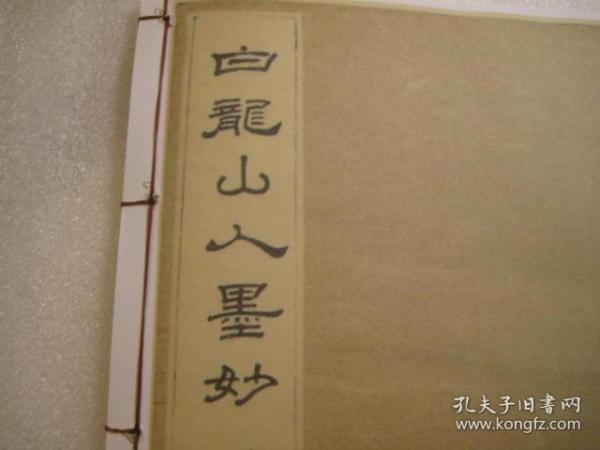 白龍山人墨妙
孔夫子旧書网
www.kongfz.com